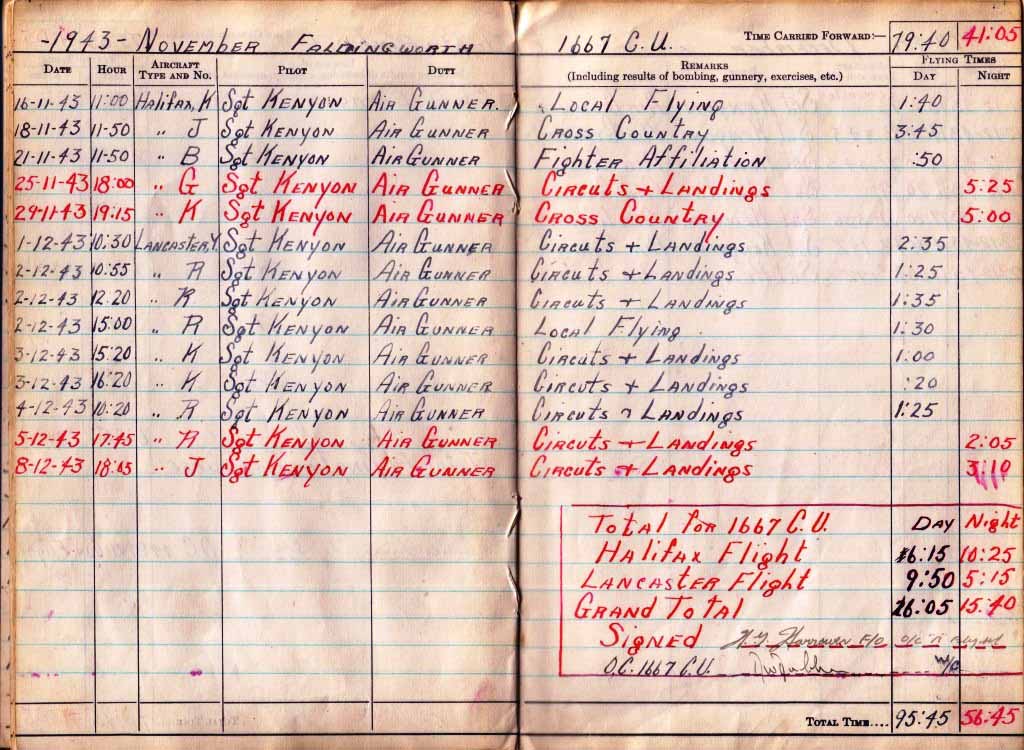 -1943- November Faldingworth 1667 C.U. Time Carried Forward:— 79:40 41:05
Date Hour Aircraft Type and No. Pilot Duty Remarks (Including results of bombing, gunnery, exercises, etc.) Flying Times Day Night
16-11-43 11:00 Halifax, K Sgt Kenyon Air Gunner. Local Flying 1:40
18-11-43 11-50 " J Sgt Kenyon Air Gunner Cross Country 3:45
21-11-43 11-50 " B Sgt Kenyon Air Gunner Fighter Affiliation :50
25-11-43 18:00 " G Sgt Kenyon Air Gunner Circuts + Landings 5:25
29-11-43 19:15 " K Sgt Kenyon Air Gunner Cross Country 5:00
1-12-43 10:30 Lancaster, Y. Sgt Kenyon Air Gunner Circuts + Landings 2:35
2-12-43 10:55 " R Sgt Kenyon Air Gunner Circuts + Landings 1:25
2-12-43 12.20 " R Sgt Kenyon Air Gunner Circuts + Landings 1:35
2-12-43 15:00 " R Sgt Kenyon Air Gunner Local Flying . 1:30
3-12-43 15:20 " K Sgt Kenyon Air Gunner Circuts + Landings 1:00
3-12-43 16:20 " K Sgt Kenyon Air Gunner Circuts + Landings :20
4-12-43 10:20 " R Sgt Kenyon Air Gunner Circuts + Landings 1:25
5-12-43 17:45 " R Sgt Kenyon Air Gunner Circuts + Landings 2:05
8-12-43 18:05 " J Sgt Kenyon Air Gunner Circuts + Landings 3:10
Total for 1667 C.U. Day Night
Halifax Flight 6:15 10:25
Lancaster Flight 9:50 5:15
Grand Total 16:05 15:40
Signed F/O
O.C. 1667 C.U. W/C
Total Time.... 95:45 56:45